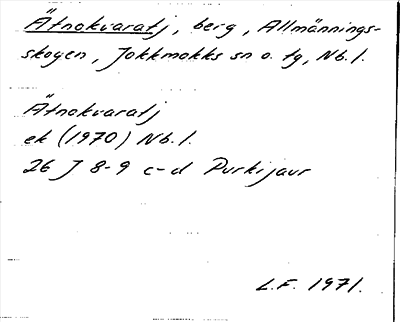 Ätnokvaratj, berg, Allmännings-
skogen, Jokkmokks sn o. tg, Nb. l.
Ätnokvaratj
ek (1970) Nb. l.
26 J 8-9 c-d Purkijaur
L.F. 1971.